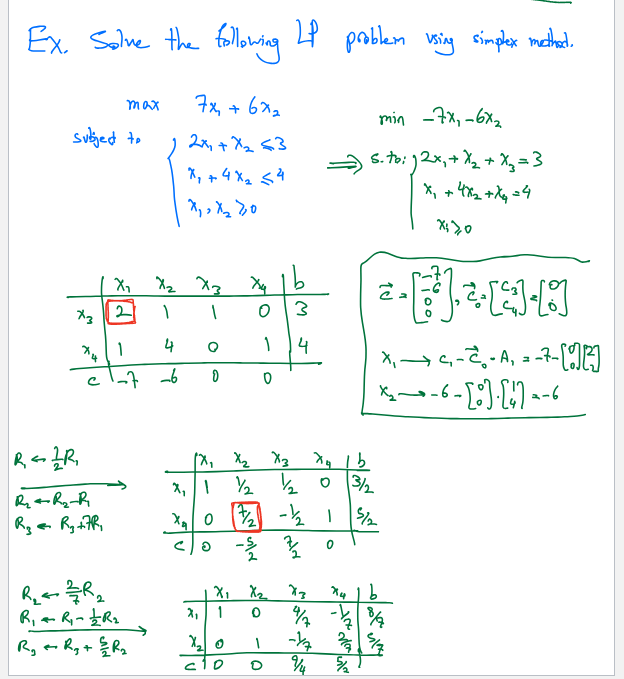 Ex. Solve the following LP problem using simplex method.
max 7x₁ + 6x₂
subject to
2x₁ + x₂ ≤ 3
x₁ + 4x₂ ≤ 4
x₁, x₂ ≥ 0
⟹
min -7x₁ - 6x₂
s.to: 2x₁ + x₂ + x₃ = 3
x₁ + 4x₂ + x₄ = 4
xᵢ ≥ 0
x₁ x₂ x₃ x₄ b
x₃ 2 1 1 0 3
x₄ 1 4 0 1 4
c -7 -6 0 0
c⃗ = [-7 -6 0 0], c⃗₀ = [c₃ c₄] = [0 0]
x₁ → c₁ - c⃗₀ · A₁ = -7 - [0 0][2 1]
x₂ → -6 - [0 0] · [1 4] = -6
R₁ ← 1/2 R₁
R₂ ← R₂ - R₁
R₃ ← R₃ + 7R₁
x₁ x₂ x₃ x₄ b
x₁ 1 1/2 1/2 0 3/2
x₄ 0 7/2 -1/2 1 5/2
c 0 -5/2 7/2 0
R₂ ← 2/7 R₂
R₁ ← R₁ - 1/2 R₂
R₃ ← R₃ + 5/2 R₂
x₁ x₂ x₃ x₄ b
x₁ 1 0 4/7 -1/7 8/7
x₂ 0 1 -1/7 2/7 5/7
c 0 0 9/4 5/2